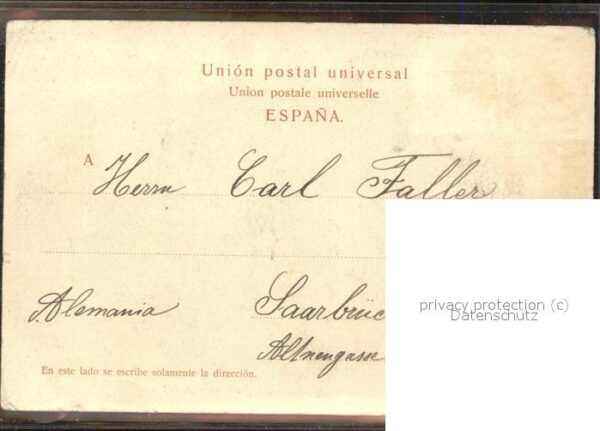 Unión postal universal
Union postale universelle
ESPAÑA.
A Herrn Carl Faller
Alemania Saarbrüc
privacy protection (c)
Datenschutz
En este lado se escribe solamente la dirección.